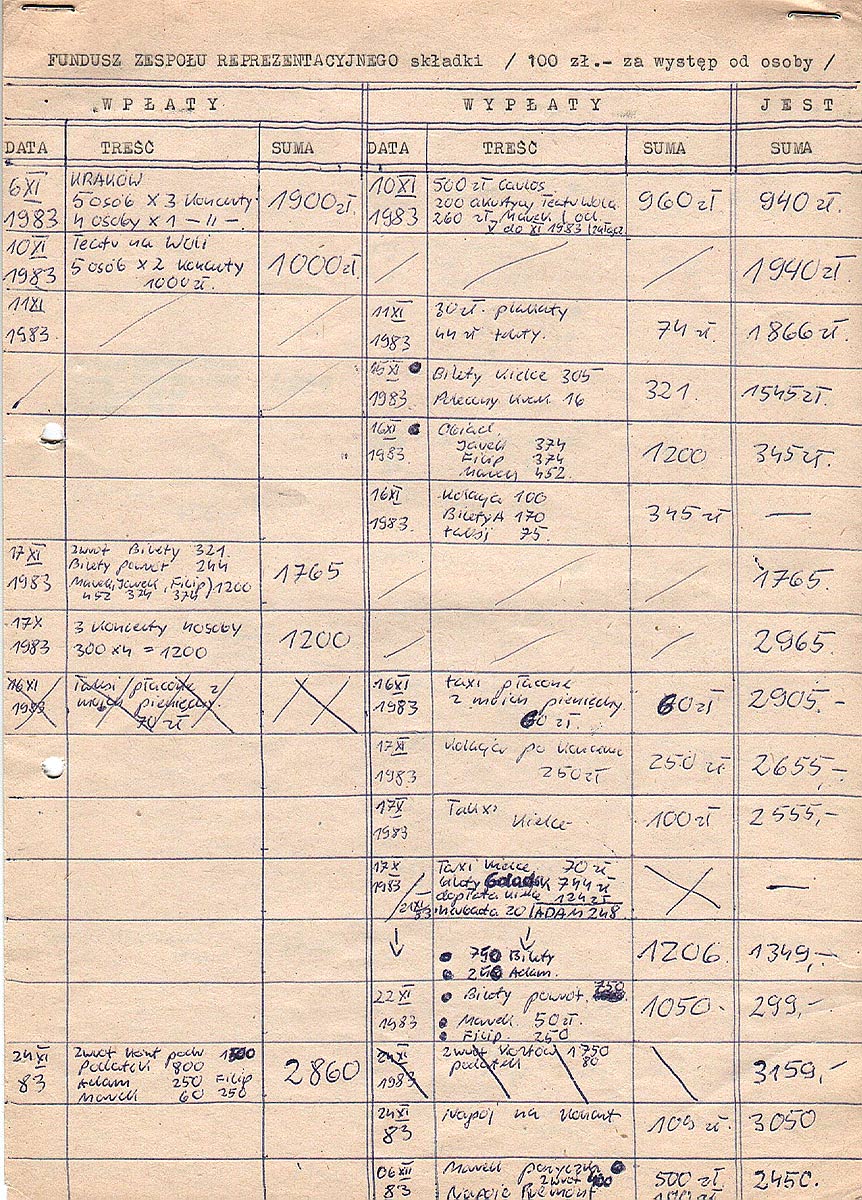 FUNDUSZ ZESPOŁU REPREZENTACYJNEGO składki / 100 zł.- za występ od osoby /
WPŁATY WYPŁATY JEST
DATA TREŚĆ SUMA DATA TREŚĆ SUMA SUMA
6 XI 1983
KRAKÓW
5 osób x 3 koncerty
4 osoby x 1 - 11 -
1900 zł.
10 XI 1983
500 zł
200 Teatr Wola
260 zł Marek
do XI 1983
960 zł
940 zł.
10 XI 1983
Teatr na Woli
5 osób x 2 koncerty
1000 zł.
1000 zł.
1940 zł.
11 XI 1983
11 XI 1983
30 zł. plakaty
44 zł
74 zł.
1866 zł.
16 XI 1983
Bilety Kielce 305
16
321.
1545 zł.
16 XI 1983
Obiad
Jarek 374
Filip 374
Marek 452
1200
345 zł.
16 XI 1983
Kolacja 100
Bilety 170
taksi 75.
345 zł
—
17 XI 1983
zwrot Bilety 321.
Bilety powrót 244
Marek, Jarek, Filip) 1200
452 374 374
1765
1765.
17 X 1983
3 koncerty 4 osoby
300 x 4 = 1200
1200
2965.
16 XI 1983
Taksi płacone z
moich pieniędzy
70 zł
16 XI 1983
taxi płacone
z moich pieniędzy
60 zł.
60 zł
2905.-
17 XI 1983
Kolacja po koncercie
250 zł
250 zł
2655,-
17 X 1983
Taksi
Kielce
100 zł
2555,-
17 X 1983
/21 XI 83
Taxi Kielce 70 zł
744 zł
dopłata
20 ADAM 248
—
750 Bilety
Adam.
1206
1349,-
22 XI 1983
Bilety powrót. 750
Marek 50 zł.
Filip. 250
1050.
299,-
24 XI 83
zwrot
Podatki 800
Adam 250 Filip
Marek 60 250
2860
24 XI 1983
zwrot 1750
podatek 80
3159,-
24 XI 83
Napój na koncert
109 zł.
3050
06 XII 83
Marek pożyczka
zwrot
Napoje Remont
500 zł
2450.